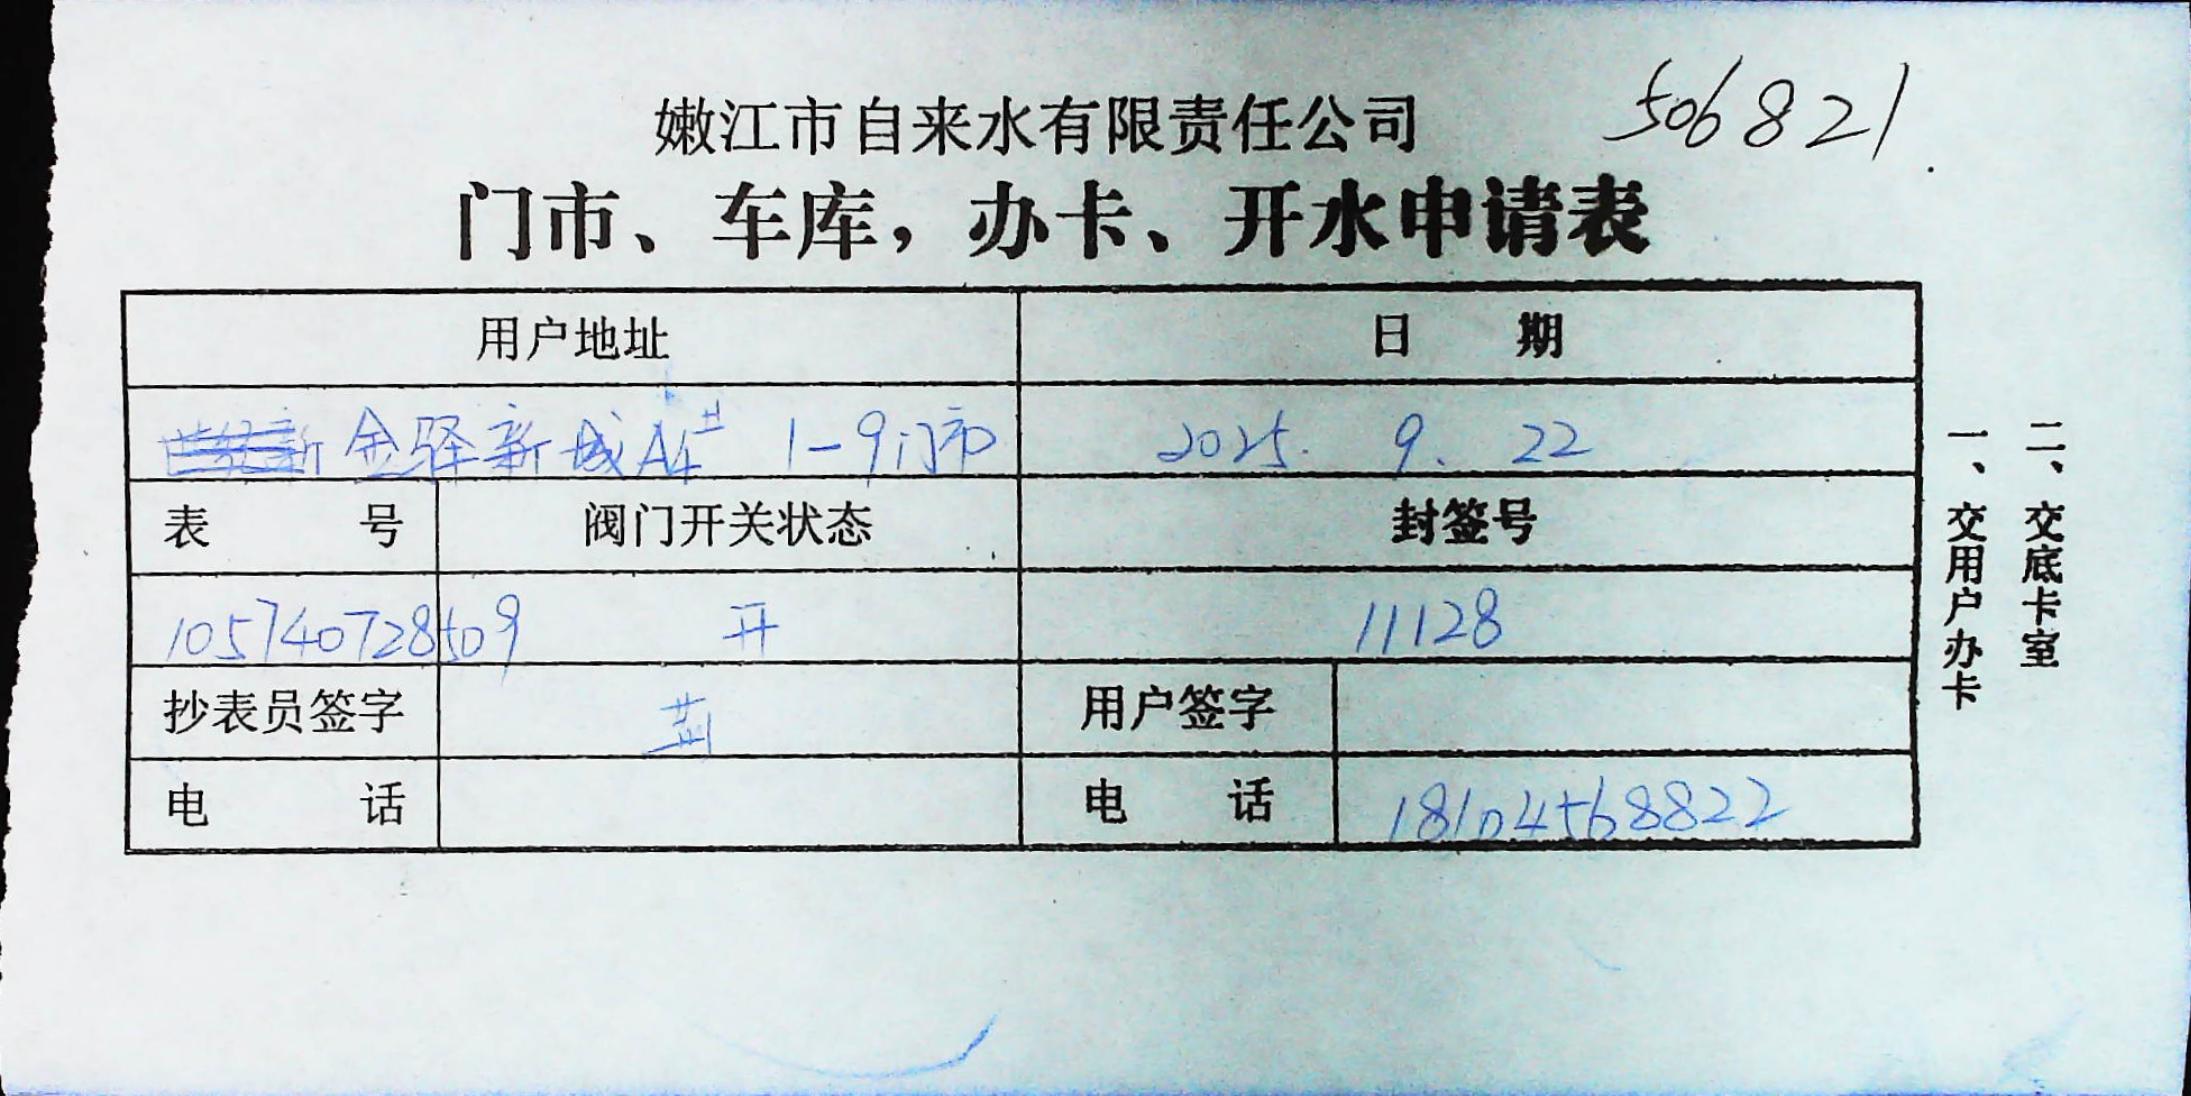 506821
嫩江市自来水有限责任公司
门市、车库，办卡、开水申请表
用户地址 日 期
金驿新城A4# 1-9门市 2025. 9. 22
表 号 阀门开关状态 封签号
105740728509 开 11128
抄表员签字 用户签字
电 话 电 话 18104568822
一、交用户办卡
二、交底卡室